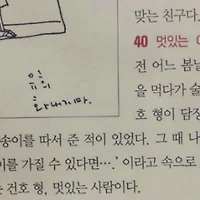 맞는 친구다.
40 멋있는
전 어느 봄날
을 먹다가 술
호 형이 담장
유의
화내지마.
송이를 따서 준 적이 있었다. 그 때 나
이를 가질 수 있다면….’ 이라고 속으로
는 건호 형, 멋있는 사람이다.